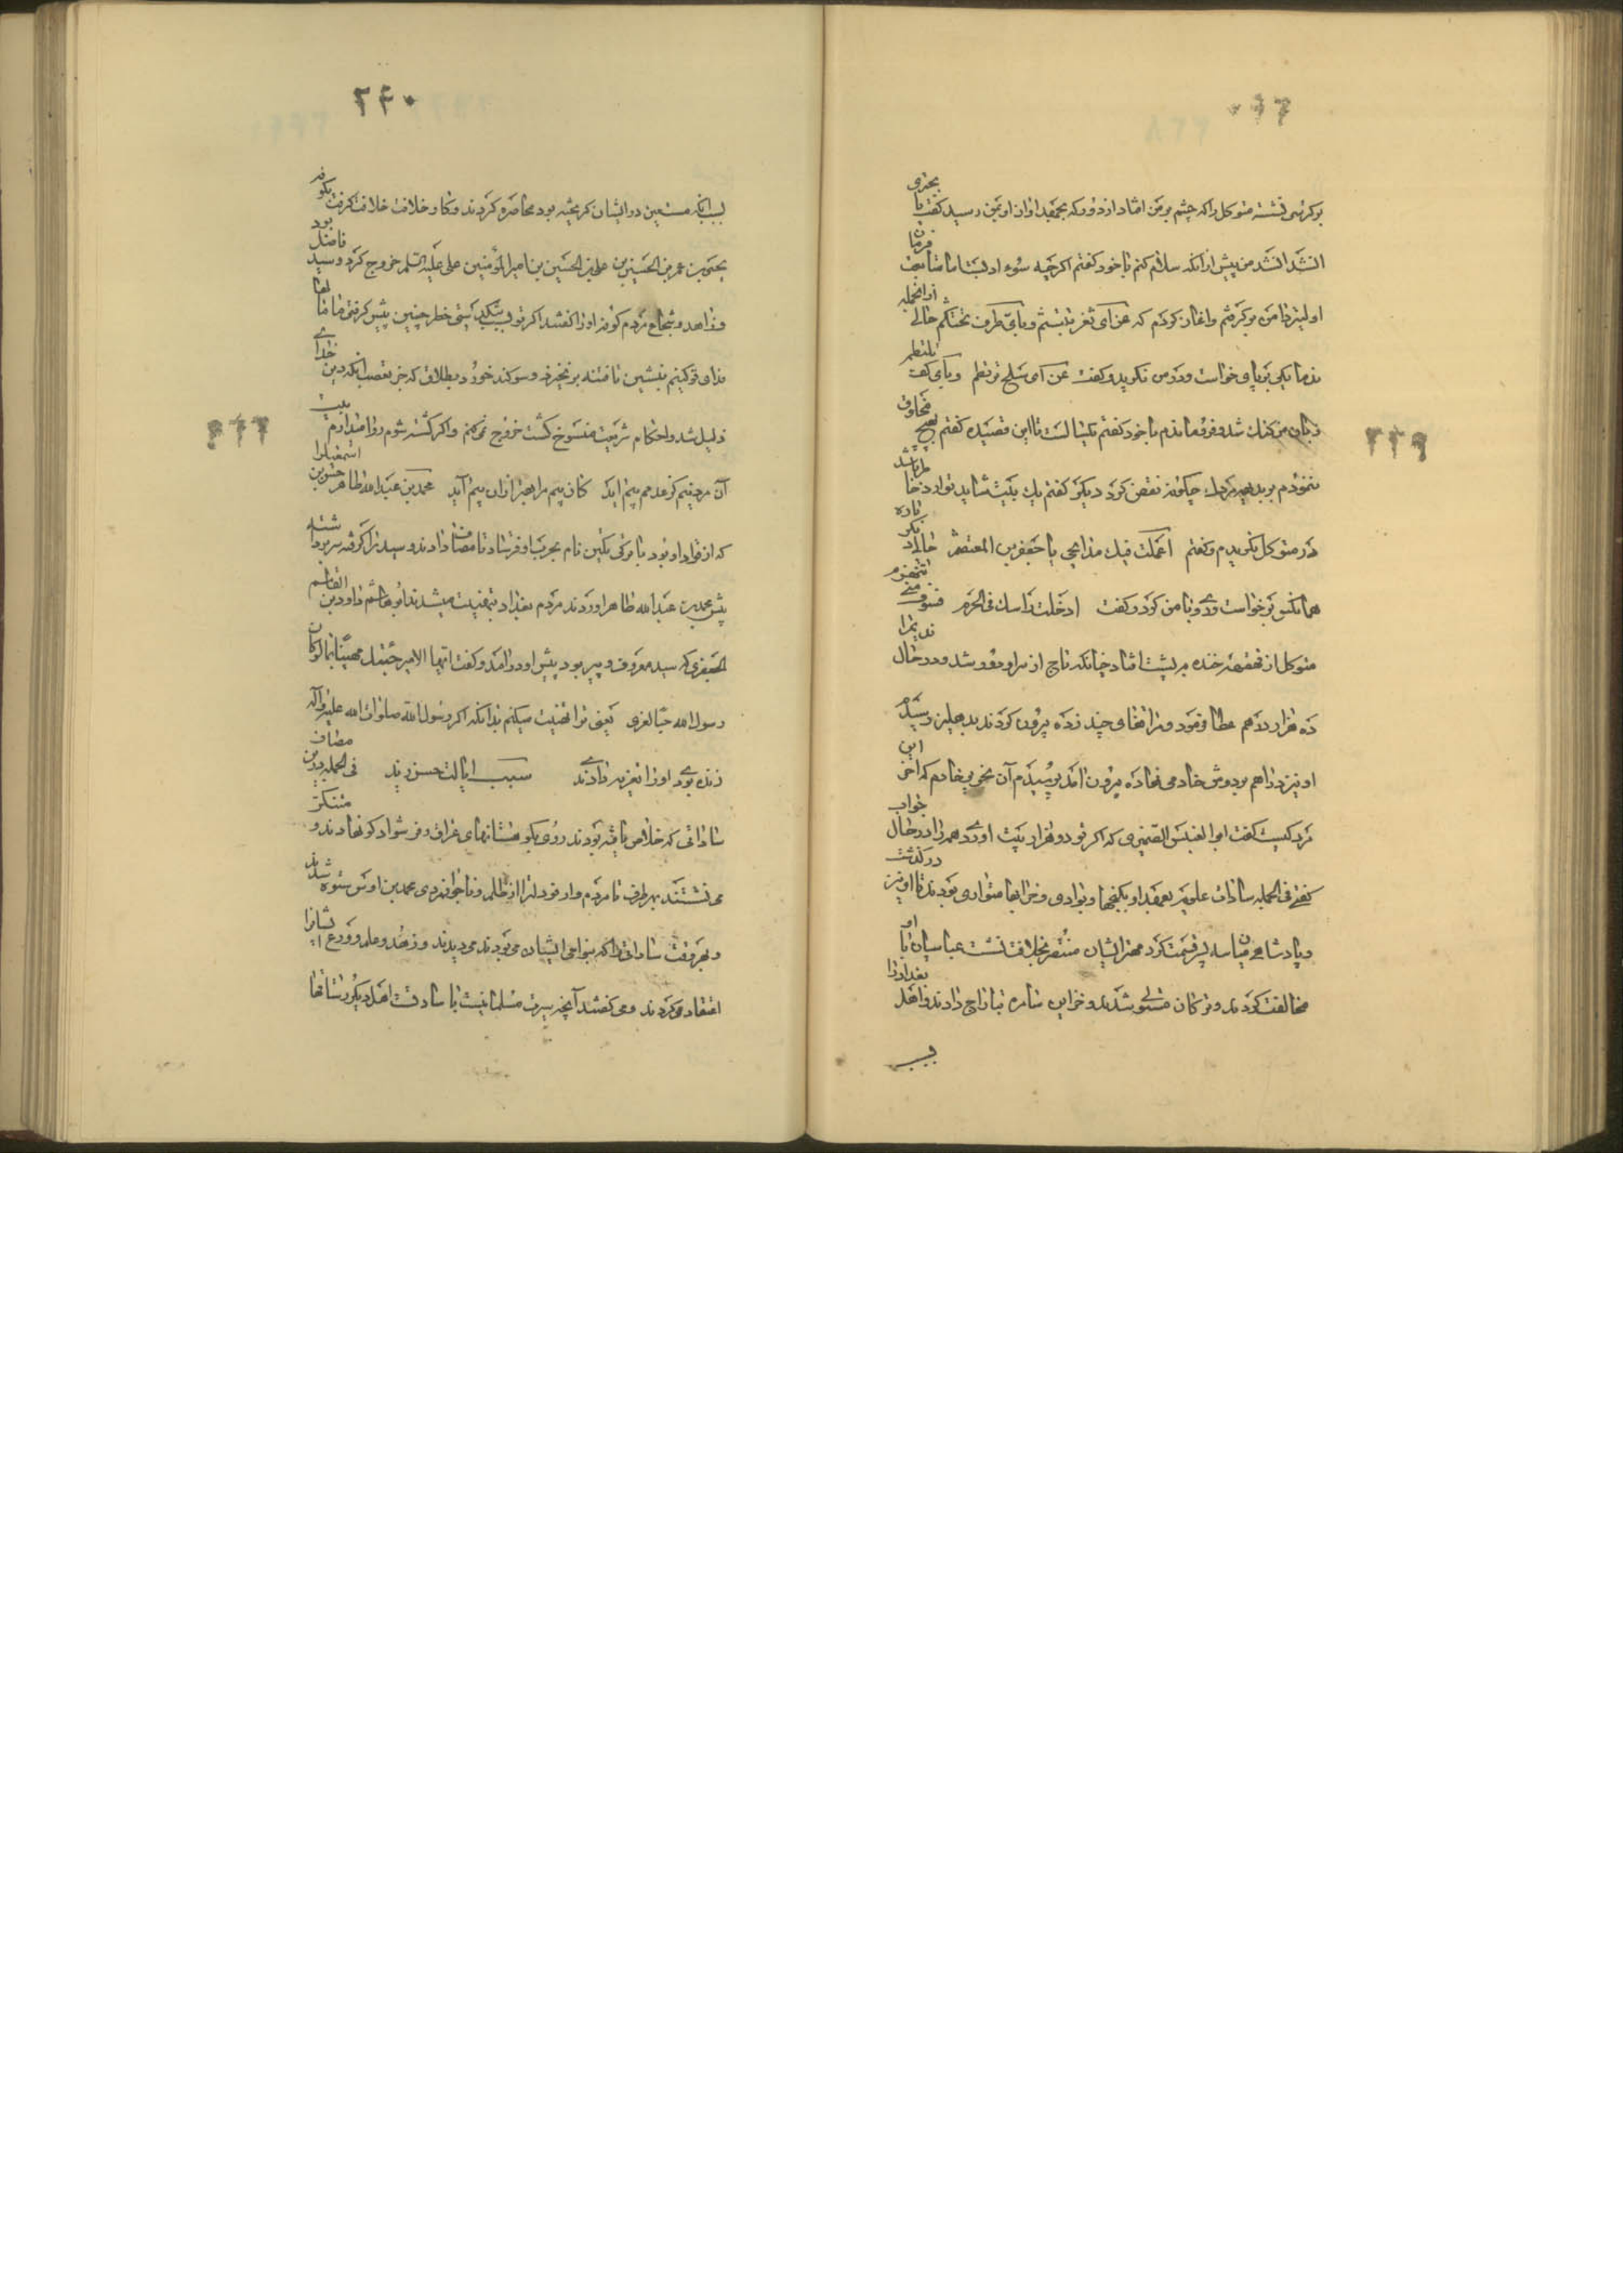 بر کرسی نشسته متوکل را که چشم بر من افتاد از دور که بحقد او از او بمن رسید گفت یا بحتری
انشد انشد من پیش از آنکه سلام کنم با خود گفتم اگرچه سوء ادبست اما متابعت فرمان
اولیتر دامن بر گرفتم و آغاز کردم که عن ای ثغر تبتسم و بای طرف تحتکم حالی از آنجمله
ندما یکی بر پای خواست و در من نگرید و گفت عن ای سلح ترتطم و بای کف تلتطم
زبان من گنگ شد و فرو ماندم با خود گفتم تا این قصیده گفتم بهیچ مخلوق
ننمودم برید چگونه نقض کرد دیگر گفتم یک بیت شاید توارد خاطر باشد
در متوکل نگریدم و گفتم اعملت فیک مدایحی یا جعفر بن المعتصم حالی باره دیگر
همانکس برخواست و روی با من کرد و گفت ادخلت راسک فی الحرم فسوف تنهزم
متوکل از قهقهه خنده بر پشت افتاد چنانکه تاج از سر او دور شد و در حال ندیم را
ده هزار درهم عطا فرمود و مرا قفای چند زده بیرون کردند بدهلیز رسیدم
او نیز دراهم بر دوش خادمی نهاده بیرون آمد پرسیدم از خادم که آخر این
مرد کیست گفت ابو العنبس الصیمری که اگر تو دو هزار بیت آوری همه را در حال جواب
گفتی فی الجمله سادات علویه بعهد او بکنجها و بوادی و خرابها متواری بودند تا او نیز در گذشت
و پادشاهی میان سه پسر قسمت کرد مهتر ایشان منتصر بخلافت نشست عباسیان با او
مخالفت کردند و ترکان مستولی شدند و خزاین سامره بتاراج دادند و اهل بغداد را
بسبب
۲۲۹
۲۴۰
بسبب آنکه مستعین در ایشان گریخته بود محاصره کردند و کار خلافت خلاف گرفت بکوفه
یحیی بن عمر بن الحسین بن علی بن الحسین بن امیر المؤمنین علی علیه السلم خروج کرد و سید فاضل بود
و زاهد و شجاع مردم کوفه او را گفتند اگر تو بسبب تنگدستی خطر چنین پیش گرفتی ما مالها
فدای تو کنیم بنشین تا فتنه برنخیزد و سوگند خورد بطلاق که جز بتعصب آنکه دین خدای
ذلیل شد و احکام شریعت منسوخ گشت خروج نمی‌کنم و اگر کشته شوم روا میدارم بیت
آن مرد نیم کز عدمم بیم آید کان بیم مرا بهتر از این بیم آید محمد بن عبد الله طاهر حسین بن اسمعیل را
که از قواد او بود با ترکی تکین نام بحرب او فرستاد تا مصاف دادند و سید را گرفته سر برداشته
پیش محمد بن عبد الله طاهر آوردند مردم بغداد بتهنیت میشدند ابو هاشم داود بن القاسم
الجعفری که سید معروف و پیر بود پیش او در آمد و گفت ایها الامیر جئتک مهنیا بما لو کان
رسول الله حیا لعزی یعنی ترا تهنیت میکنم بدانکه اگر رسول الله صلوات الله علیه و آله
زنده بودی او را تعزیه دادندی سبب ایالت حسن زید فی الجمله در این مصاف
ساداتی که خلاص یافته بودند روی بکوهستانهای عراق و فرشوادگر نهادند و متنکر
می نشستند بهر طرف تا مردم دارفو و لترا از ظلم و ناجوانمردی محمد بن اوس ستوه شدند
و بهر وقت ساداتی را که بنواحی ایشان می بودند می دیدند و زهد و علم و ورع ایشان را
اعتقاد میکردند و می گفتند آنچه سیرت مسلمانیست با ساداتست اهل دیگر رستاقها